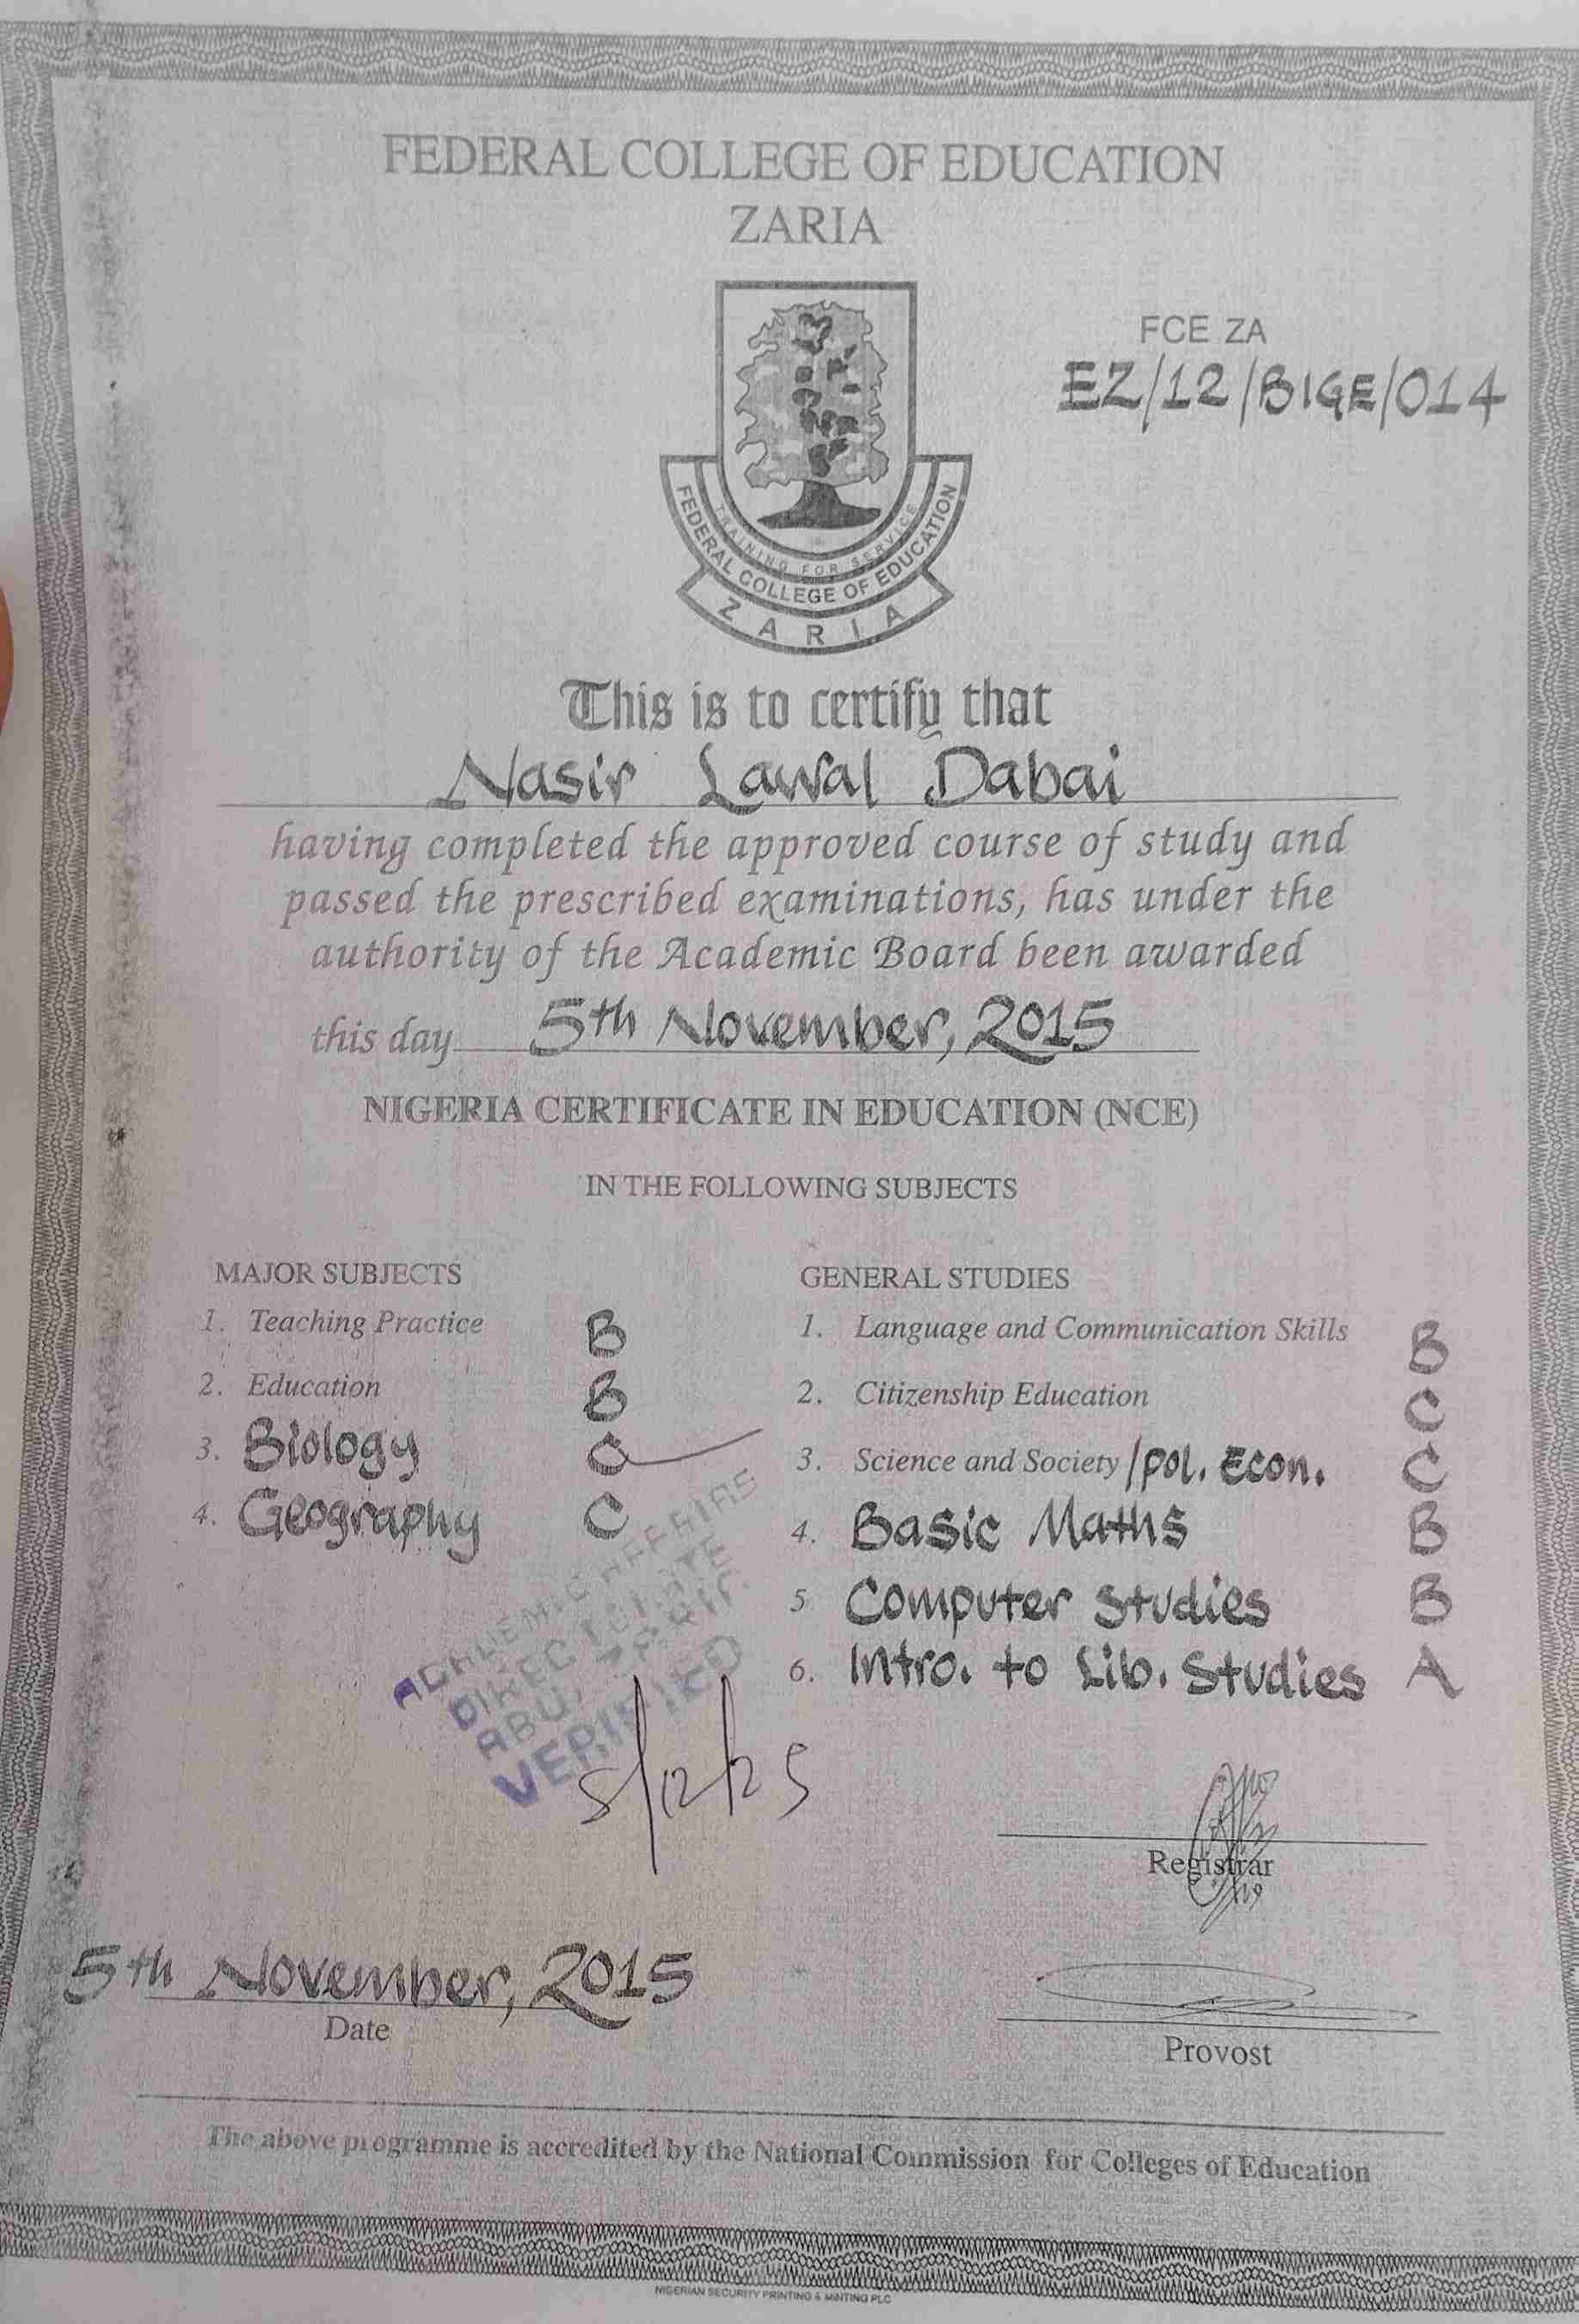 FEDERAL COLLEGE OF EDUCATION
ZARIA
FCE ZA
EZ/12/BIGE/014
TRAINING FOR SERVICE
FEDERAL COLLEGE OF EDUCATION
ZARIA
This is to certify that
Nasir Lawal Dabai
having completed the approved course of study and
passed the prescribed examinations, has under the
authority of the Academic Board been awarded
this day 5th November, 2015
NIGERIA CERTIFICATE IN EDUCATION (NCE)
IN THE FOLLOWING SUBJECTS
MAJOR SUBJECTS
1. Teaching Practice B
2. Education B
3. Biology C
4. Geography C
GENERAL STUDIES
1. Language and Communication Skills B
2. Citizenship Education C
3. Science and Society /pol. Econ. C
4. Basic Maths B
5 Computer Studies B
6. Intro. to Lib. Studies A
ACADEMIC AFFAIRS
DIRECTORATE
ABU, ZARIA
VERIFIED
5/12/25
Registrar
5th November, 2015
Date
Provost
The above programme is accredited by the National Commission for Colleges of Education
NIGERIAN SECURITY PRINTING & MINTING PLC